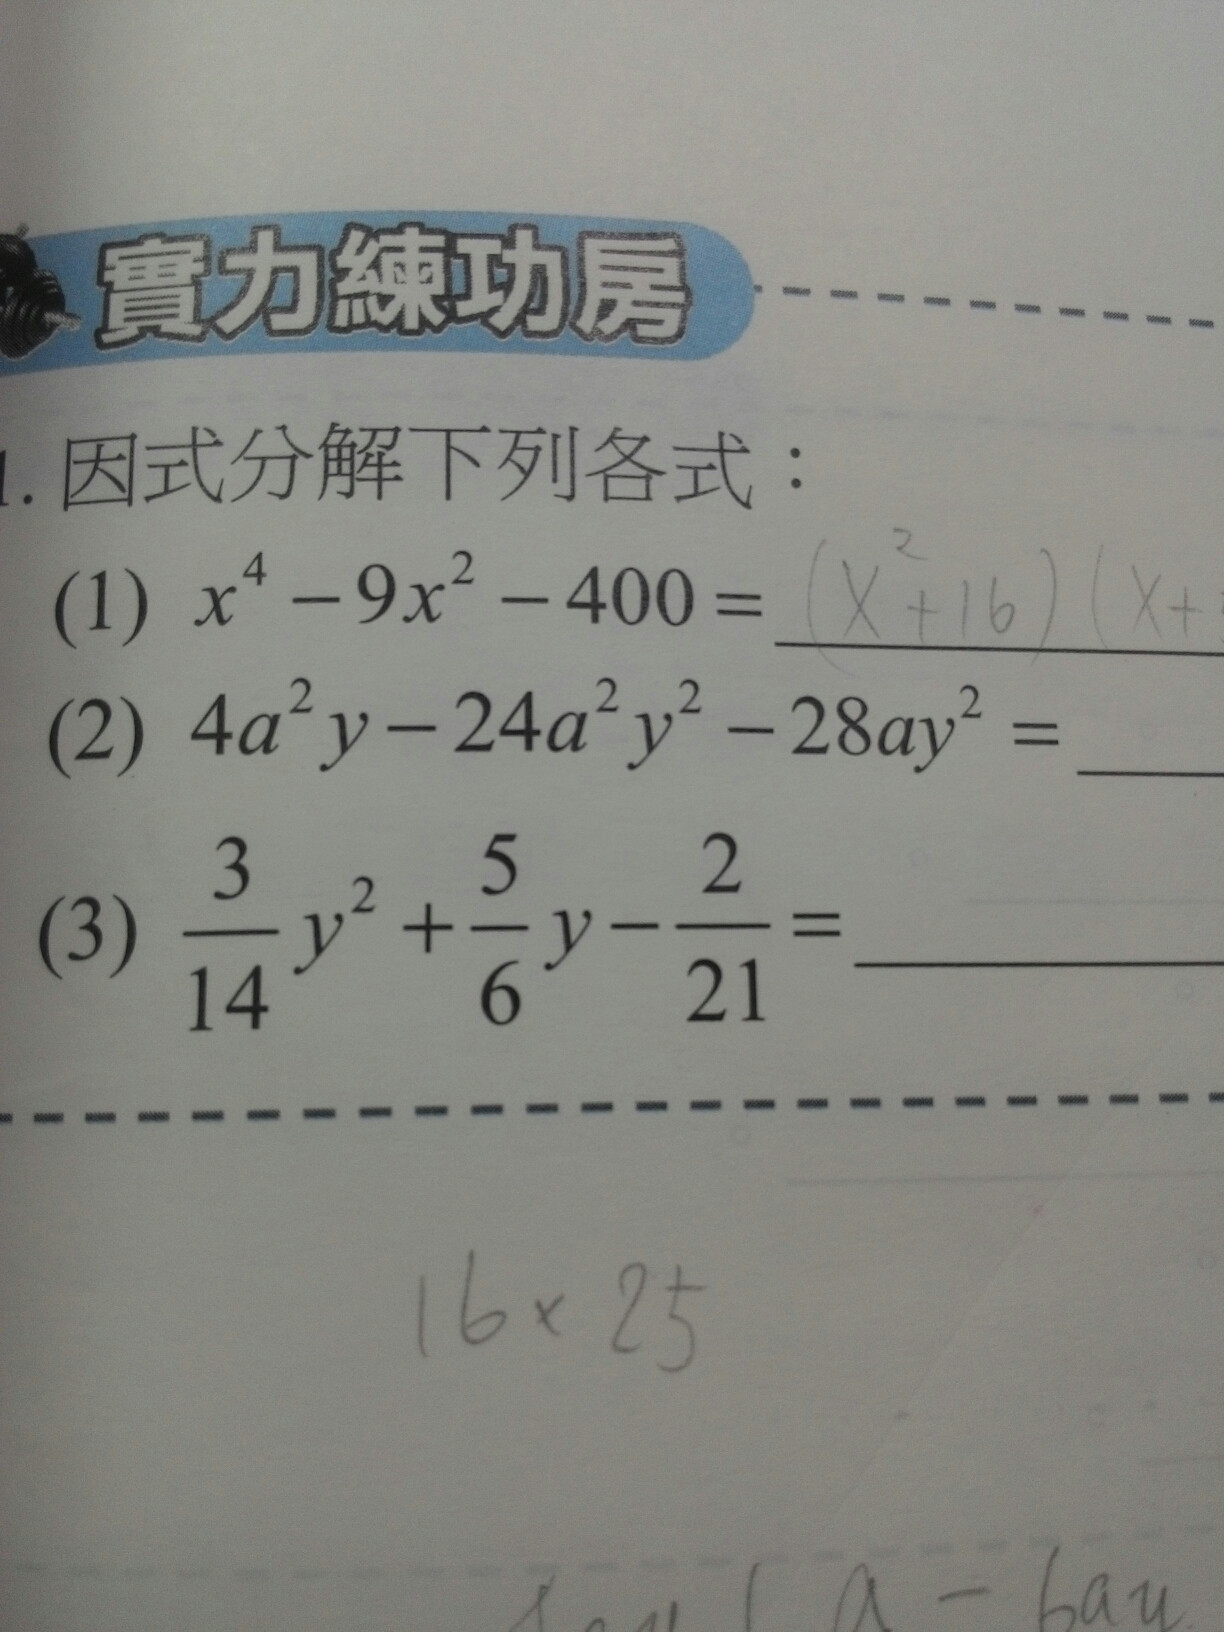 實力練功房
1. 因式分解下列各式：
(1) x⁴ − 9x² − 400 = (x² + 16) (x +
(2) 4a²y − 24a²y² − 28ay² =
(3) 3/14 y² + 5/6 y − 2/21 =
16 × 25
a − 6ay